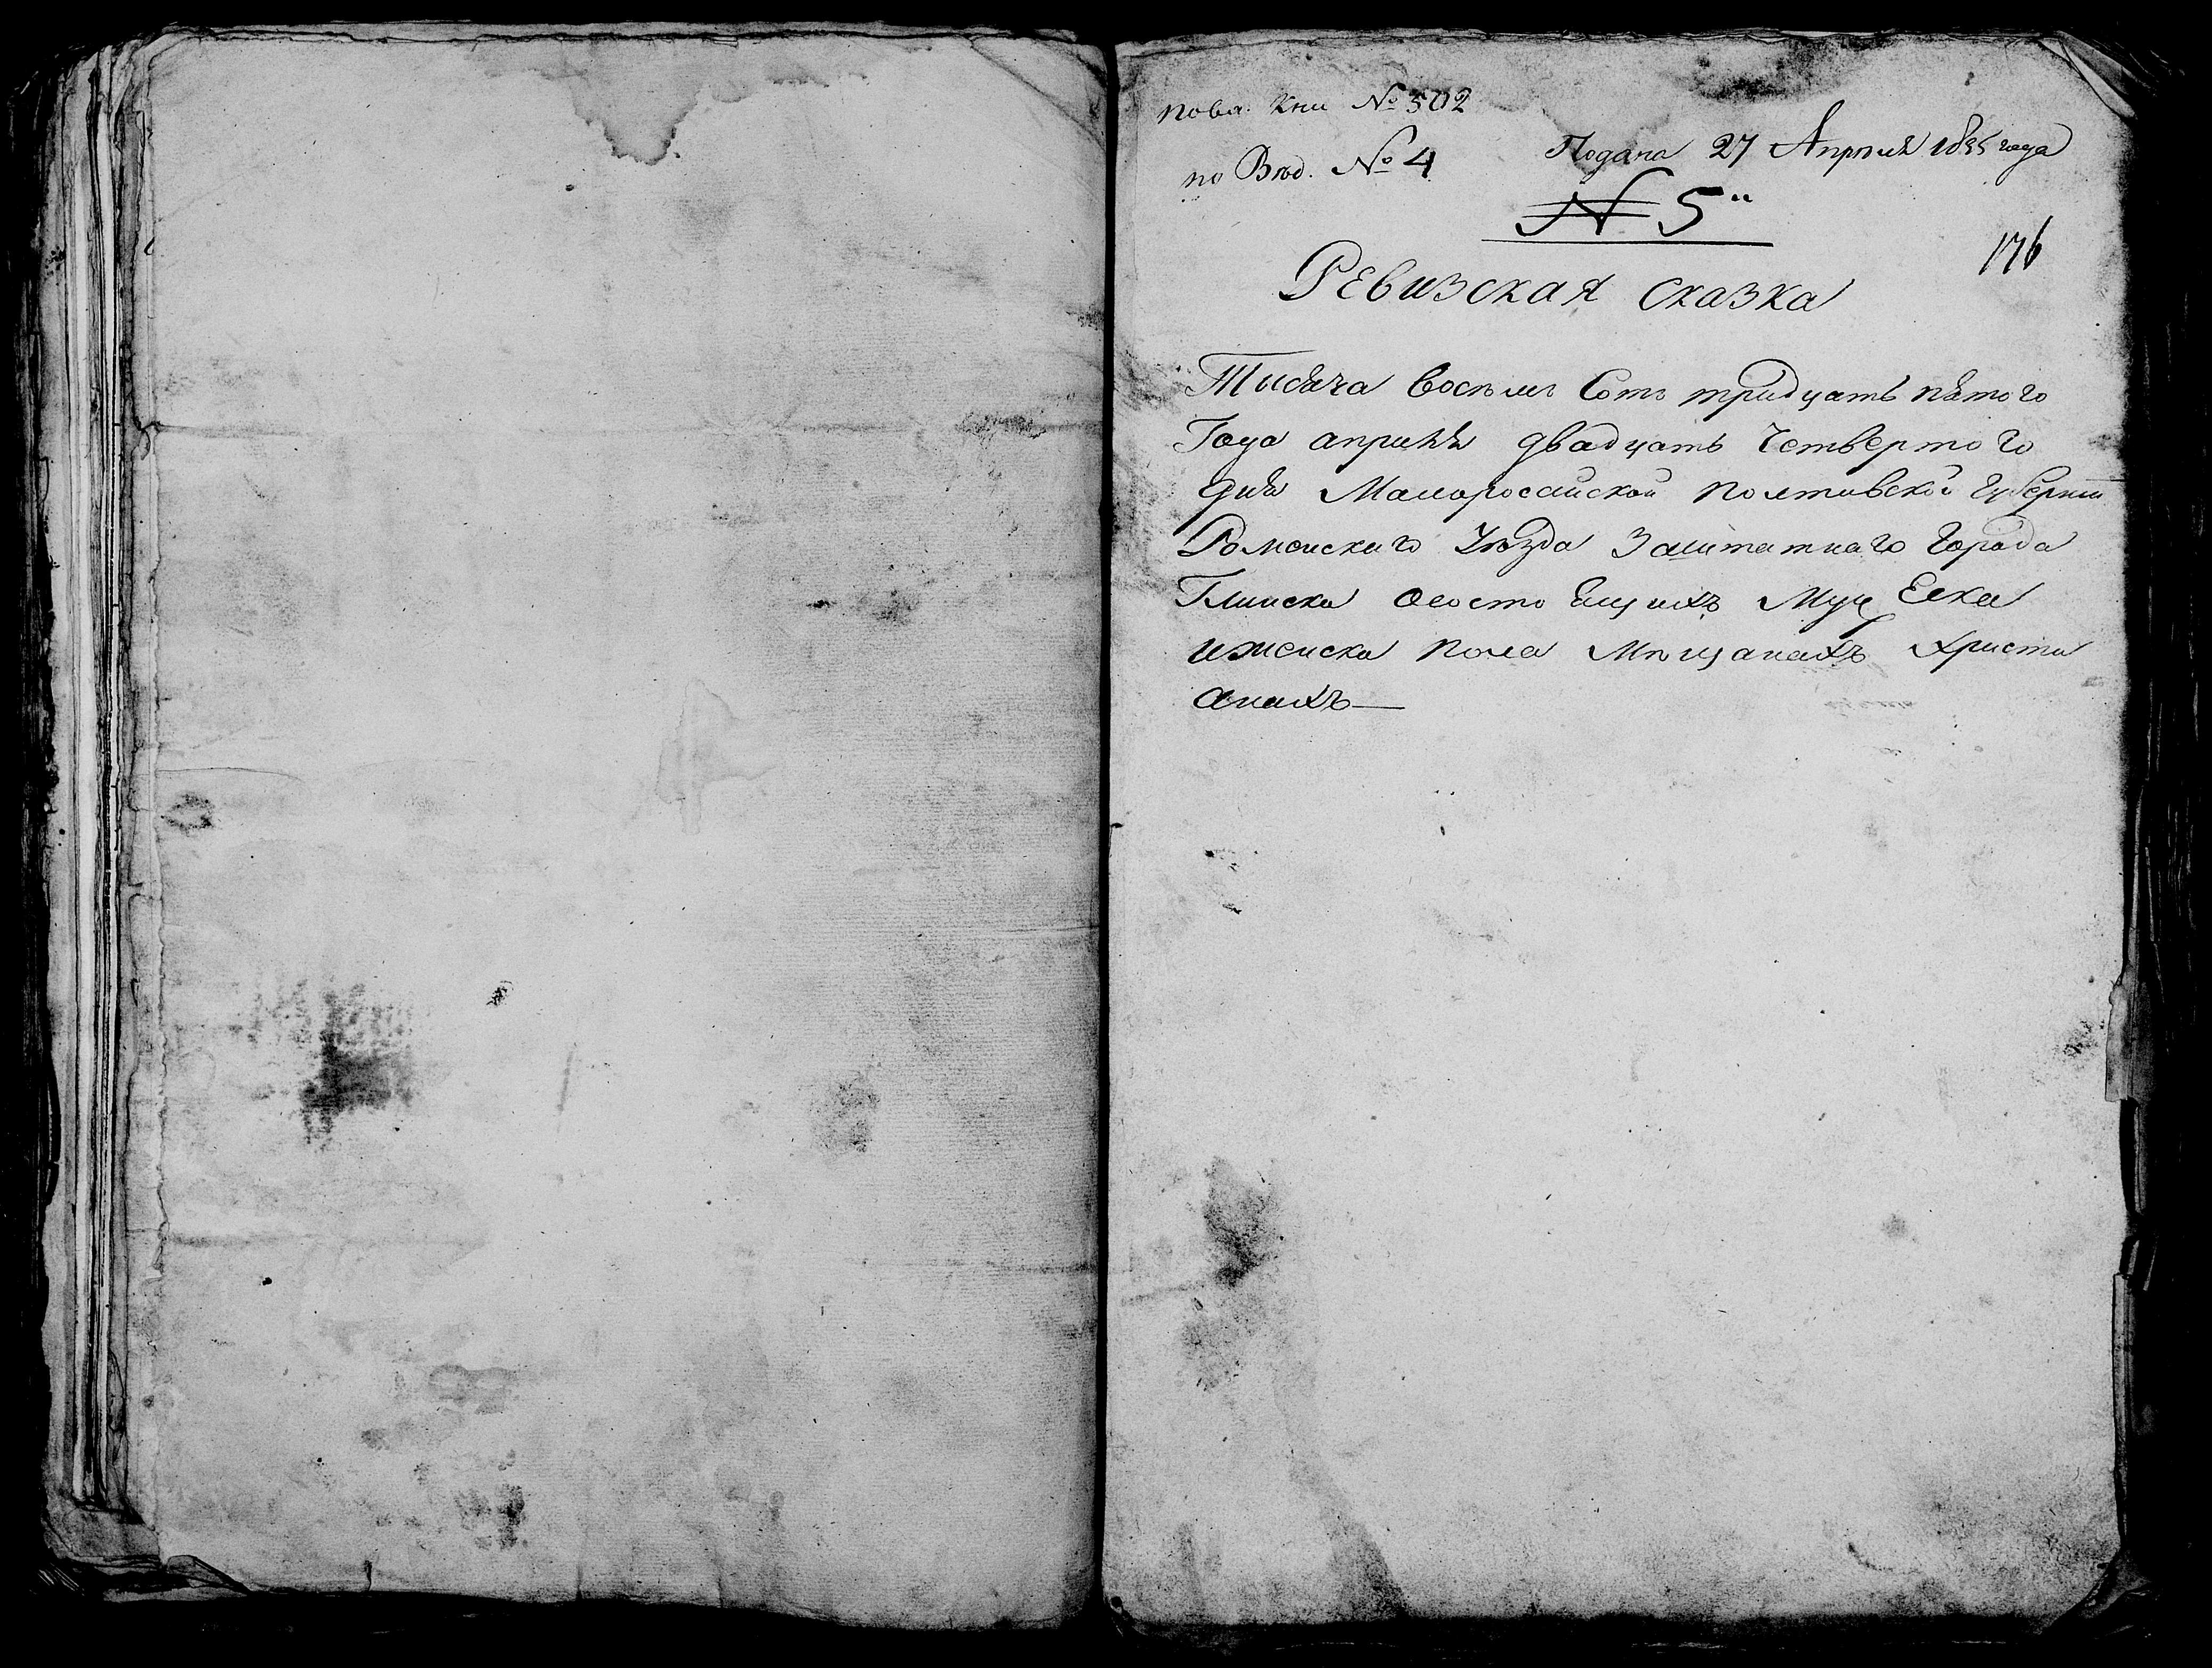 по вх. Кни № 502
по Вѣд. № 4
Подана 27 Апрѣля 1835 года
№ 5
176
Ревизская сказка
Тысяча восѣмь Сотъ тридцать пятого
Года апреля двадцать Четвертого
дня Малоросийской полтавской губернии
Роменскаго Уѣзда Заштатнаго Города
Глинска осостоящихъ Муж Еска
иженска пола Мѣщанахъ Христи
анахъ—